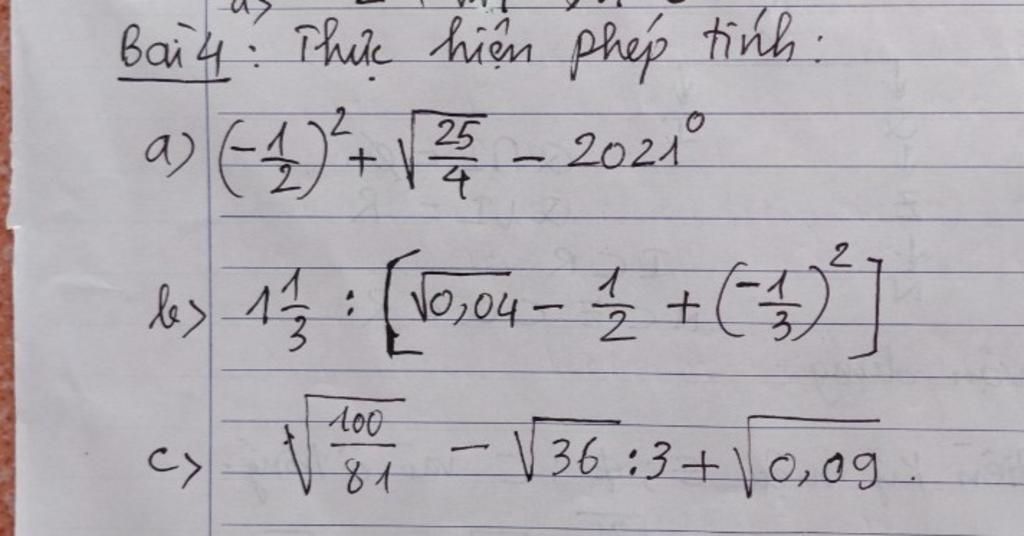 Bài 4 : Thực hiện phép tính :
a) (-1/2)² + √(25/4) - 2021⁰
b) 1 1/3 : [√0,04 - 1/2 + (-1/3)²]
c) √(100/81) - √36 : 3 + √0,09 .